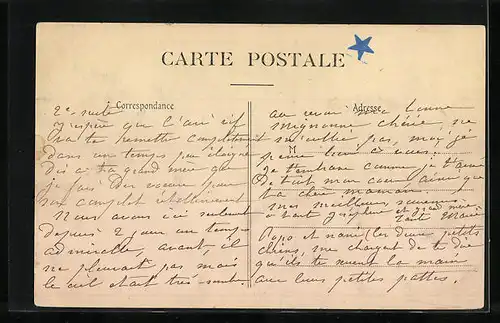 CARTE POSTALE
Correspondance
Adresse
M
2e suite
j'espère que l'air vif
va te remettre complètement
dans un temps peu éloigné
dis à ta grand mère que
je fais des vœux pour
son complet rétablissement
Nous avons ici seulement
depuis 2 jours un temps
admirable, avant, il
ne pleuvait pas mais
le ciel était très
au revoir ma bonne
mignonne chérie, ne
m'oublie pas, moi, je
pense bien à vous.
Je t'embrasse comme je t'aime
de tout mon cœur ainsi que
ta chère maman.
mes meilleurs
à tante et grand mère
Marie
et nani (les deux petits
chiens) me chargent de te dire
qu'ils te la main
avec leurs petites pattes.